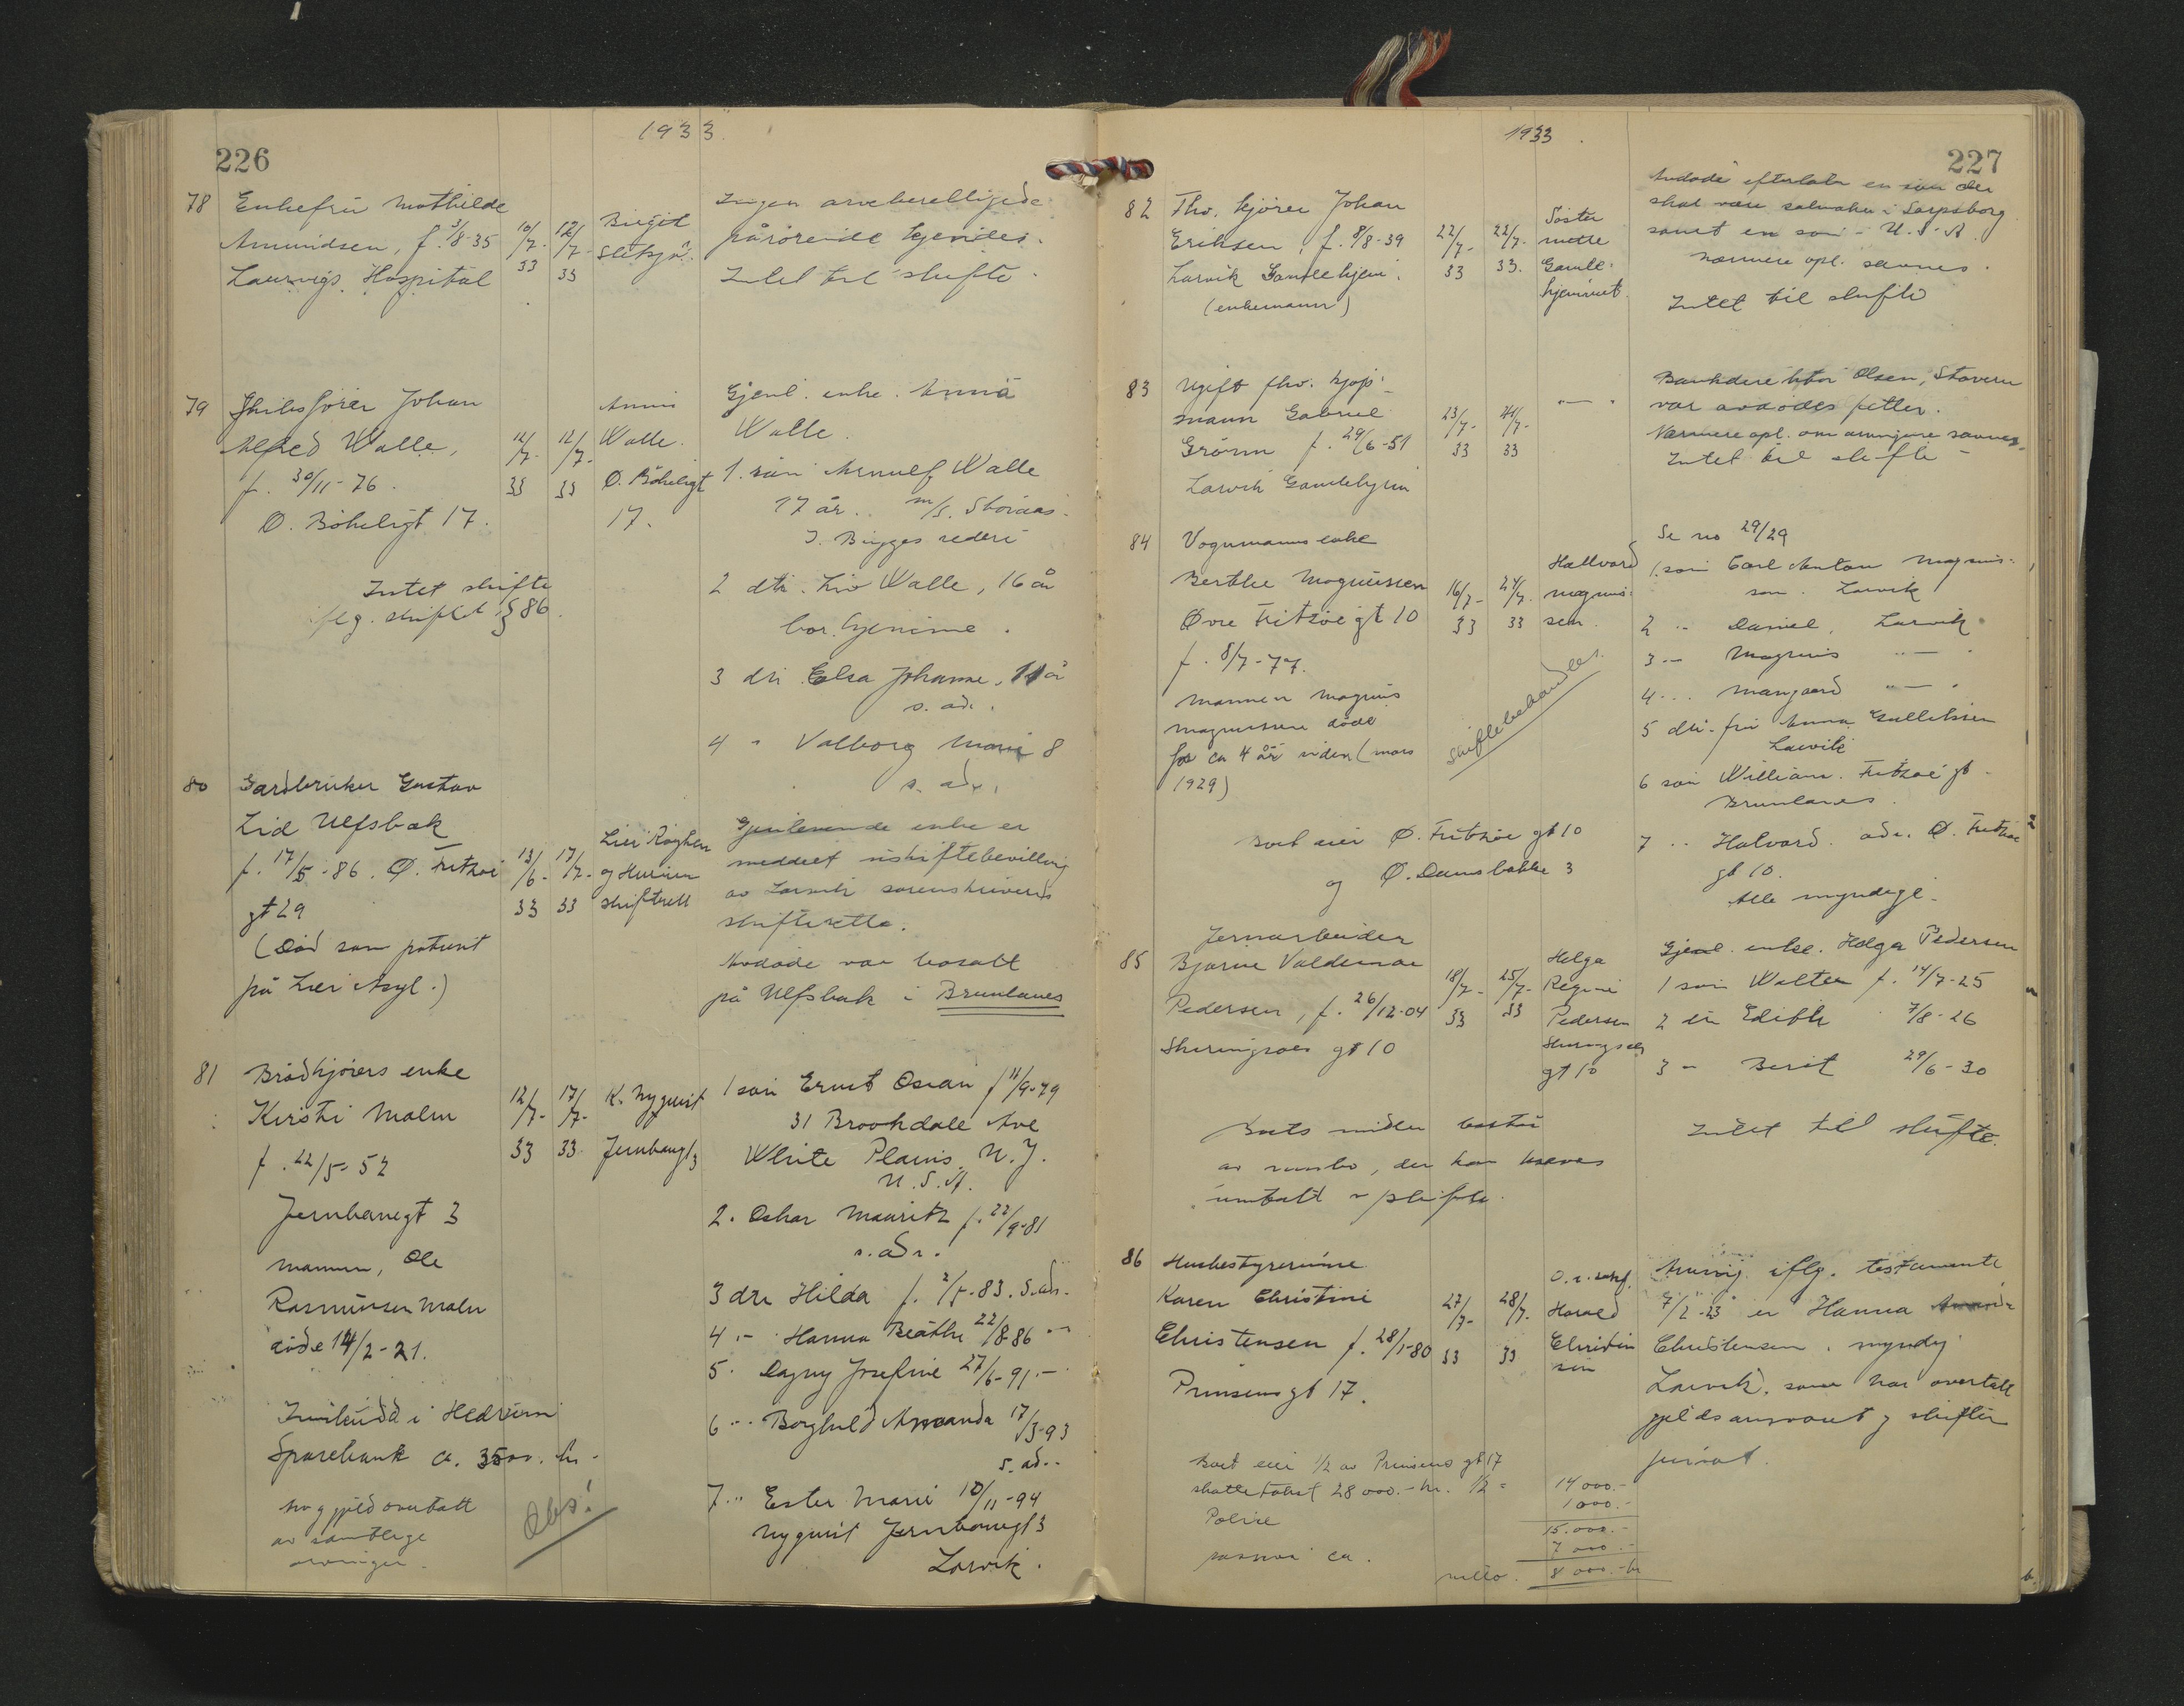 1933.
226
78 Enkefru Mathilde
Amundsen, f. 3/8-35
Laurvigs Hospital
10/7-33
12/7-33
Birgit
Sletsjø.
Ingen arveberettigede
pårørende kjendes.
Intet til skifte.
79 Johan
Alfred Walle,
f. 30/11-76.
Ø. Bøkeligt 17.
Intet skifte
iflg. skiftel. § 86.
12/7-33
12/7-33
Anna
Walle.
Ø. Bøkeligt
17.
Gjenl. enke. Anna
Walle.
1. søn Arnulf Walle
17 år.. m/s.
J. Bugges rederi
2 dtr. Liv Walle, 16 år
bor hjemme.
3 dtr. Elsa Johanne, 11 år
s. adr.
4 " Valborg Marie 8
s. adr.
80 Gardbruker Gustav
Lid Ulfsbak
f. 17/5-86. Ø. Fritzøe
gt 29
(Død som patient
på Lier Asyl.)
13/6-33
17/7-33
Lier Røyken
og Hurum
skifterett
Gjenlevende enke er
meddelt uskiftebevilling
av Larvik sorenskriveris
skifterett.
Avdøde var bosatt
på Ulfsbak i Brunlanes
81 Brødkjørers enke
Kirsti Malm
f. 22/5-52
Jernbanegt 3
mannen, Ole
Rasmussen Malm
døde 14/2-21.
Innskudd i Hedrum
Sparebank ca. 3500. kr.
Arv og gjeld overtatt
av samtlige
arvinger.
Obs!
12/7-33
17/7-33
K. Nyquist
Jernbanegt 3
1 søn Ernst Oscar f 11/9-79
31 Brookdale Ave
White Plains. N.J.
U.S.A.
2. Oskar Mauritz f. 22/9-81
s. adr.
3 dtr Hilda f. 2/5-83. s. adr.
4 " Hanna Beathe 22/8-86 "
5 " Dagny Josefine 27/6-91. "
6 " Borghild Amanda 17/3-93
s. ad..
7 " Ester Marie 10/11-94
Nyquist Jernbanegt 3
Larvik.
1933.
227
82 Fhv. kjører Johan
Eriksen, f. 8/8-39
Larvik Gamlehjem.
(enkemann)
22/7-33
22/7-33.
Søster
Mette
Gamle-
hjemmet.
Avdøde efterlater en søn der
skal være salmaker i Sarpsborg
samt en søn i U.S.A.
nærmere opl. savnes.
Intet til skifte
83 Ugift fhv. kjøp-
mann Gabriel
Grønn f. 29/6-51
Larvik Gamlehjem
23/7-33
24/7-33
" — "
Bankdirektør Olsen, Stavern
var avdødes fetter.
Nærmere opl. om arvingene savnes.
Intet til skifte -
84 Vognmanns enke
Berthe Magnussen
Øvre Fritzøegt 10
f. 8/7-77.
Mannen Magnus
Magnussen døde
for ca 4 år siden (mars
1929)
Skiftebehandles.
Boet eier Ø. Fritzøe gt 10
og Ø. Damsbakke 3
16/7-33
24/7-33
Hallvard
Magnus-
sen.
Se no 29/29
1. søn Carl Anton Magnus-
sen. Larvik
2 " Daniel, Larvik
3 " Magnus " — "
4 " " — "
5 dtr. fru Anna Gulliksen
Larvik
6 søn William. Fritzøe gt.
Brunlanes.
7 " Halvard. adr. Ø. Fritzøe
gt 10.
Alle myndige.
85 Jernarbeider
Bjarne Valdemar
Pedersen, f. 26/12-04
Skiringsals gt 10
18/7-33
25/7-33
Helga
Regine
Pedersen
Skiringsals
gt 10
Gjenl. enke. Helga Pedersen
1 søn Walter f. 14/7-25
2 dtr Edith 7/8-26
3 " Berit 29/6-30
Boets midler består
av innbo, der kan kreves
unntatt v/skifte.
Intet til skifte.
86 Husbestyrerinne
Karen Christine
Christensen f. 28/1-80
Prinsensgt 17.
27/7-33
28/7-33
O.r. sakf.
Harald
Christen
sen
Arving iflg. testamente
7/2-23 er Hanna Amanda
Christensen, myndig
Larvik, som har overtatt
gjeldsansvaret og skifter
privat.
Boet eier 1/2 av Prinsens gt 17
skattetakst 28 000.- kr. 1/2 = 14 000.-
Polise 1000.-
15.000.-
passiva ca. 7 000.-
netto. 8 000.- kr